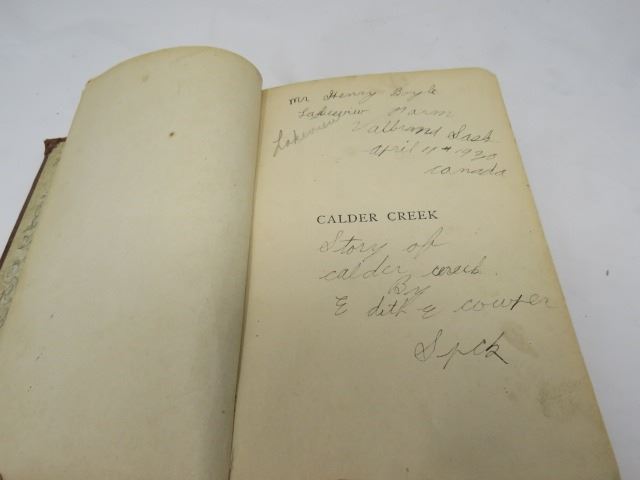 Mr Henry Boyle
Lakeview Farm
Lakeview
Valbrand Sask.
April 11th 1938
Canada
CALDER CREEK
Story of
calder creek.
By
E dith E cowper